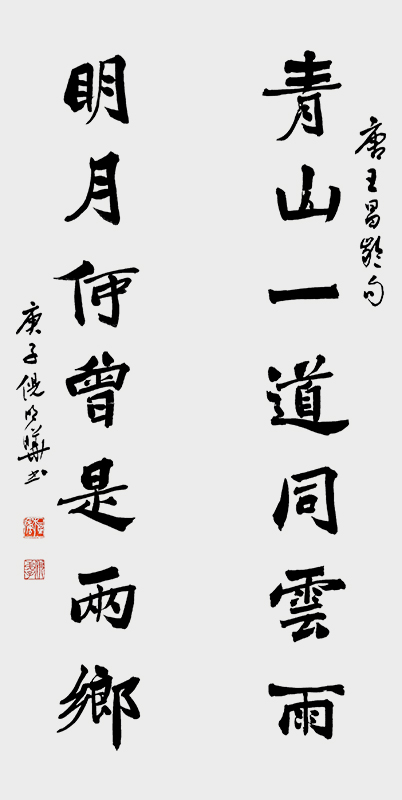 唐王昌齡句
青山一道同雲雨
明月何曾是兩鄉
庚子倪明